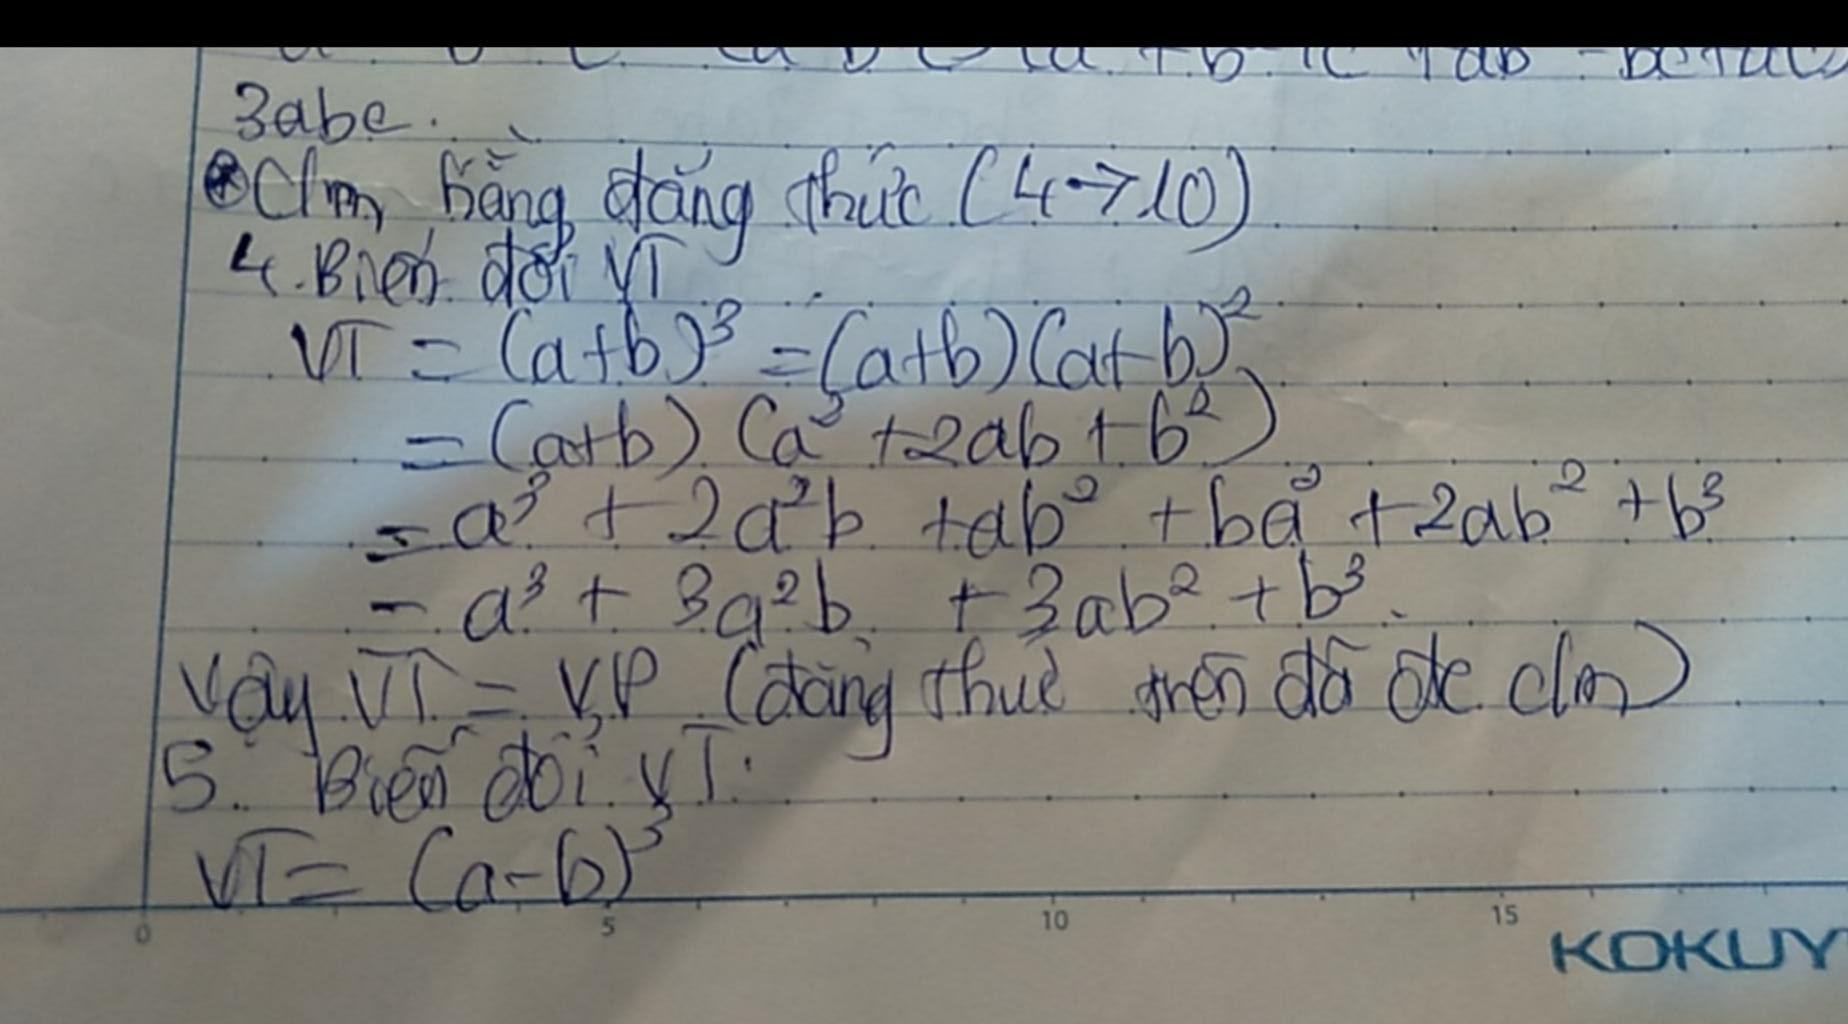 3abc.
⊛ Clm hằng đẳng thức (4→10)
4. Biến đổi VT
VT = (a+b)³ = (a+b)(a+b)²
= (a+b) (a² + 2ab + b²)
= a³ + 2a²b + ab² + ba² + 2ab² + b³
= a³ + 3a²b + 3ab² + b³.
Vậy VT = VP (đẳng thức trên đã đc clm)
5. Biến đổi VT.
VT = (a-b)³
0 5 10 15
KOKUY